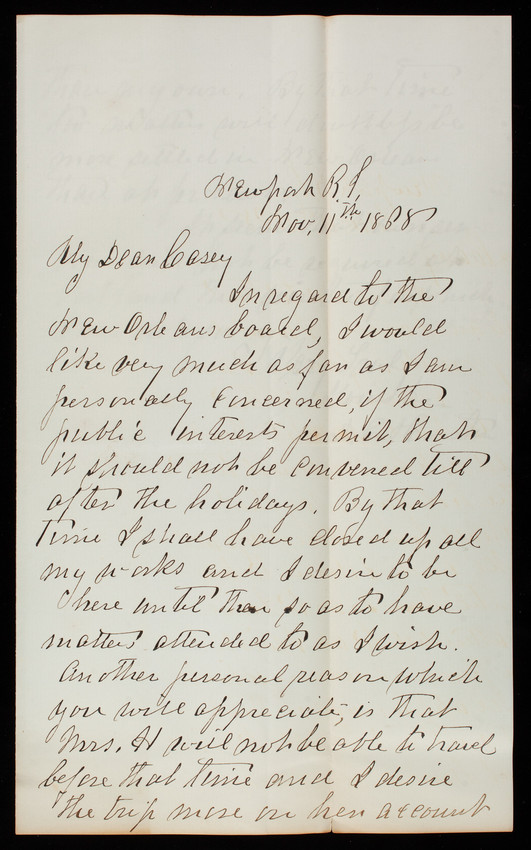 Newport R.I,
Nov. 11th 1888
My Dear Casey
In regard to the
New Orleans board, I would
like very much as far as I am
personally concerned, if the
public interests permit, that
it should not be convened till
after the holidays. By that
time I shall have closed up all
my works and I desire to be
here until then so as to have
matters attended to as I wish.
Another personal reason which
you will appreciate, is that
Mrs. H will not be able to travel
before that time and I desire
the trip more on her account